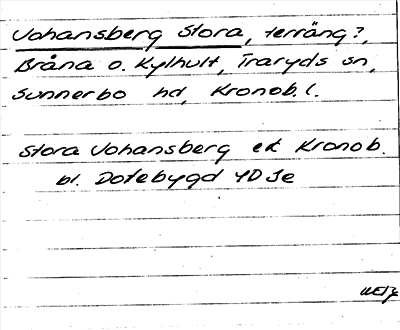 Johansberg Stora, terräng?,
Bråna o. Kylhult, Traryds sn,
Sunnerbo hd, Kronob. l.
Stora Johansberg ek Kronob.
bl. Dotebygd 4D 5e